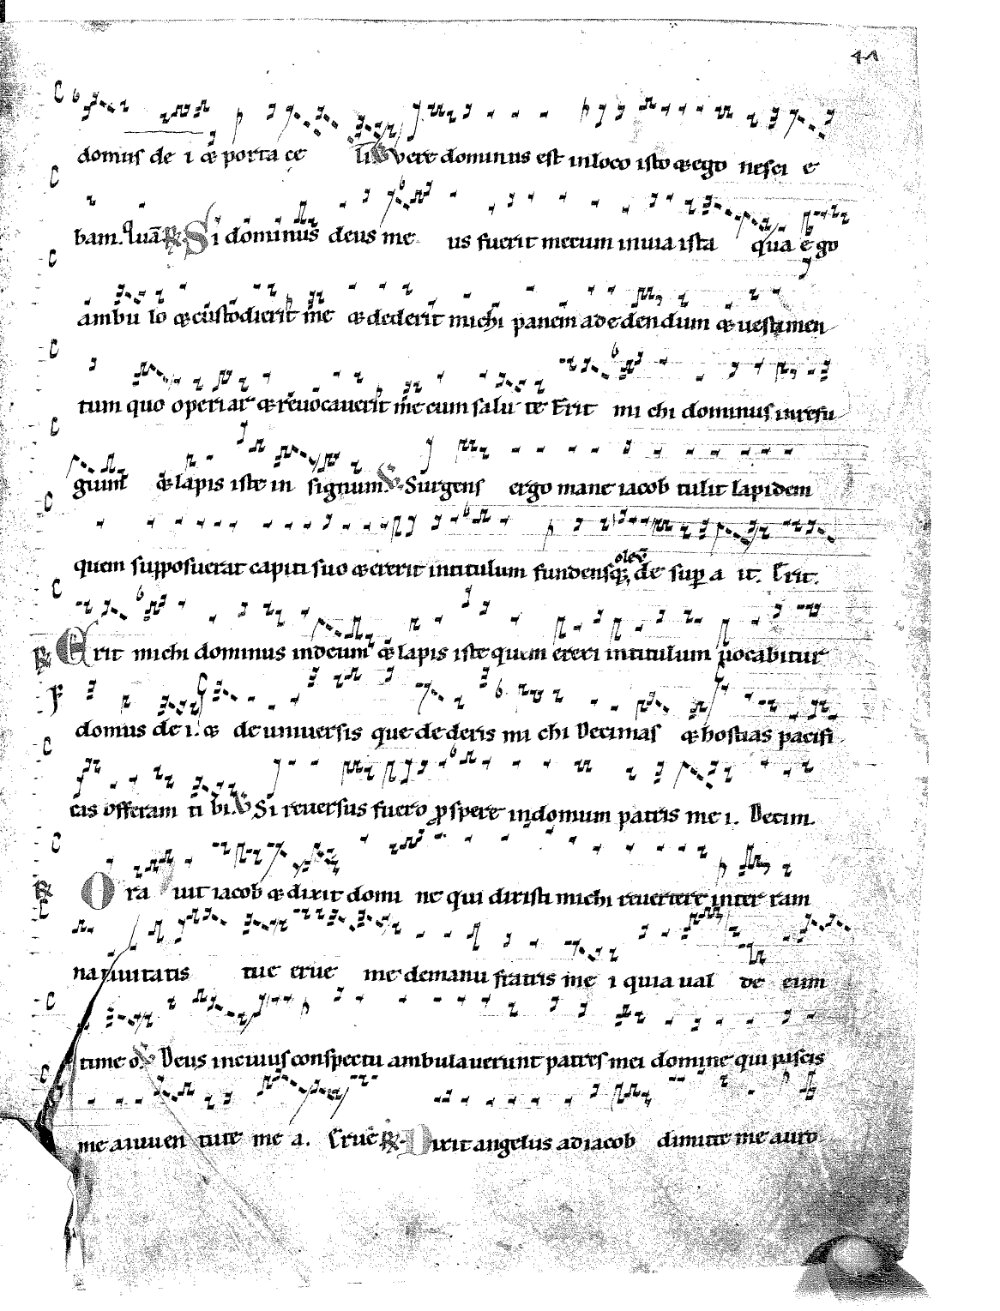 41
domus de i & porta ce li ℣ vere dominus est in loco isto & ego nesci e
bam. ℟ Si dominus deus me us fuerit mecum in uia ista qua ego
ambu lo & custodierit me & dederit michi panem ad edendum & uestimen
tum quo operiar & reuocauerit me cum salu te Erit mi chi dominus in refu
gium & lapis iste in signum. ℣ Surgens ergo mane iacob tulit lapidem
quem supposuerat capiti suo & erexit in titulum fundensq; oleū de sup a it. Erit.
℟ Erit michi dominus in deum & lapis iste quem erexi in titulum uocabitur
domus de i. & de uniuersis que de deris mi chi Decimas & hostias pacifi
cas offeram ti bi. ℣ Si reuersus fuero prospere in domum patris me i. Decim.
℟ Ora uit iacob & dixit domi ne qui dixisti michi reuertere in ter ram
natiuitatis tue erue me de manu fratris me i quia ual de eum
time o ℣ Deus in cuius conspectu ambulauerunt patres mei domine qui pascis
me a iuuen tute me a. Erue ℟ Dixit angelus ad iacob dimitte me auro